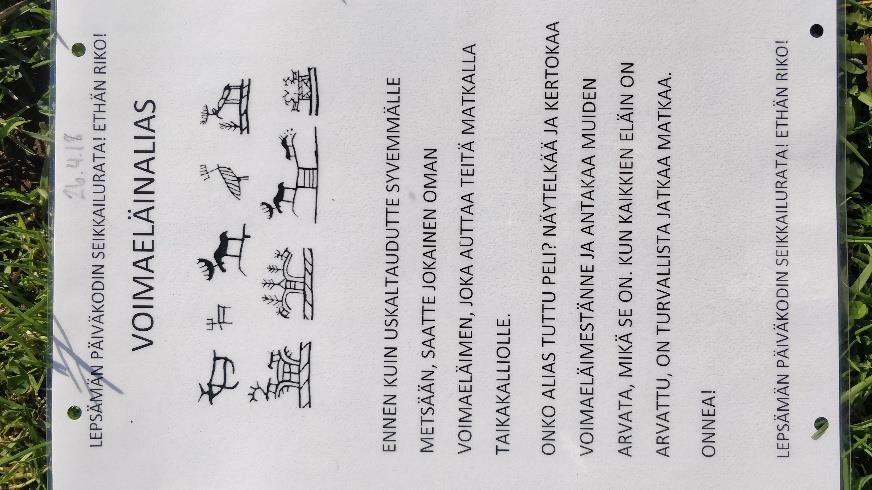 LEPSÄMÄN PÄIVÄKODIN SEIKKAILURATA! ETHÄN RIKO!
26.4.18
VOIMAELÄINALIAS
ENNEN KUIN USKALTAUDUTTE SYVEMMÄLLE
METSÄÄN, SAATTE JOKAINEN OMAN
VOIMAELÄIMEN, JOKA AUTTAA TEITÄ MATKALLA
TAIKAKALLIOLLE.
ONKO ALIAS TUTTU PELI? NÄYTELKÄÄ JA KERTOKAA
VOIMAELÄIMESTÄNNE JA ANTAKAA MUIDEN
ARVATA, MIKÄ SE ON. KUN KAIKKIEN ELÄIN ON
ARVATTU, ON TURVALLISTA JATKAA MATKAA.
ONNEA!
LEPSÄMÄN PÄIVÄKODIN SEIKKAILURATA! ETHÄN RIKO!